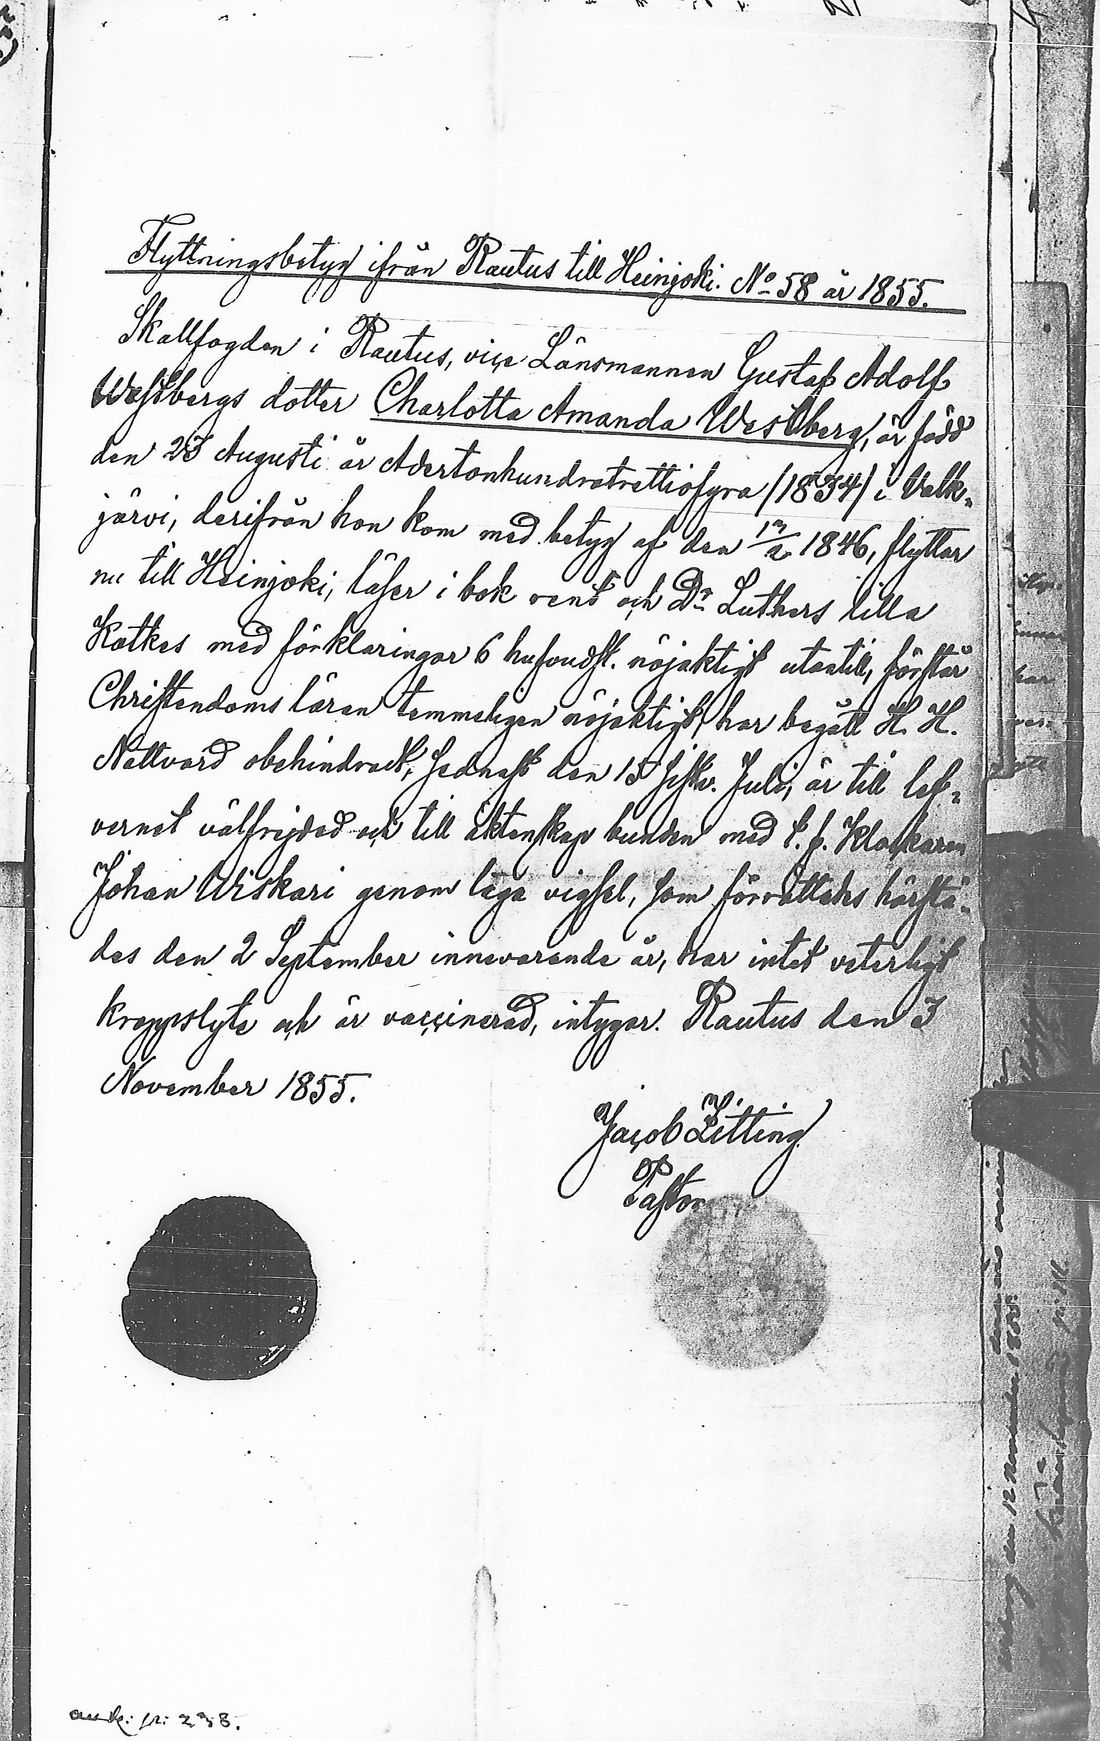 Flyttningsbetyg ifrån Rautus till Heinjoki. No 58 år 1855.
Skallfogden i Rautus, vice Länsmannen Gustaf Adolf
Westbergs dotter Charlotta Amanda Westberg, är född
den 23 Augusti år Adertonhundratrettiofyra /1834/ i Valk-
järvi, derifrån hon kom med betyg af den 1846, flyttar
nu till Heinjoki, läser i bok rent och Dr Luthers lilla
Katkes med förklaringar 6 hufvudst. nöjaktigt utantill, förstår
Christendoms läran temmeligen nöjaktigt, har begått H. H.
Nattvard obehindradt, sednast den 15 sistl. Juli, är till lef-
vernet välfrejdad och till äktenskap bunden med Klockaren
Johan Wiskari genom laga vigsel, som förrättades härstä-
des den 2 September innevarande år, har intet veterligt
kroppslyte och är vaccinerad, intygar. Rautus den 3
November 1855.
Jacob Zitting
Pastor
ank: 238.